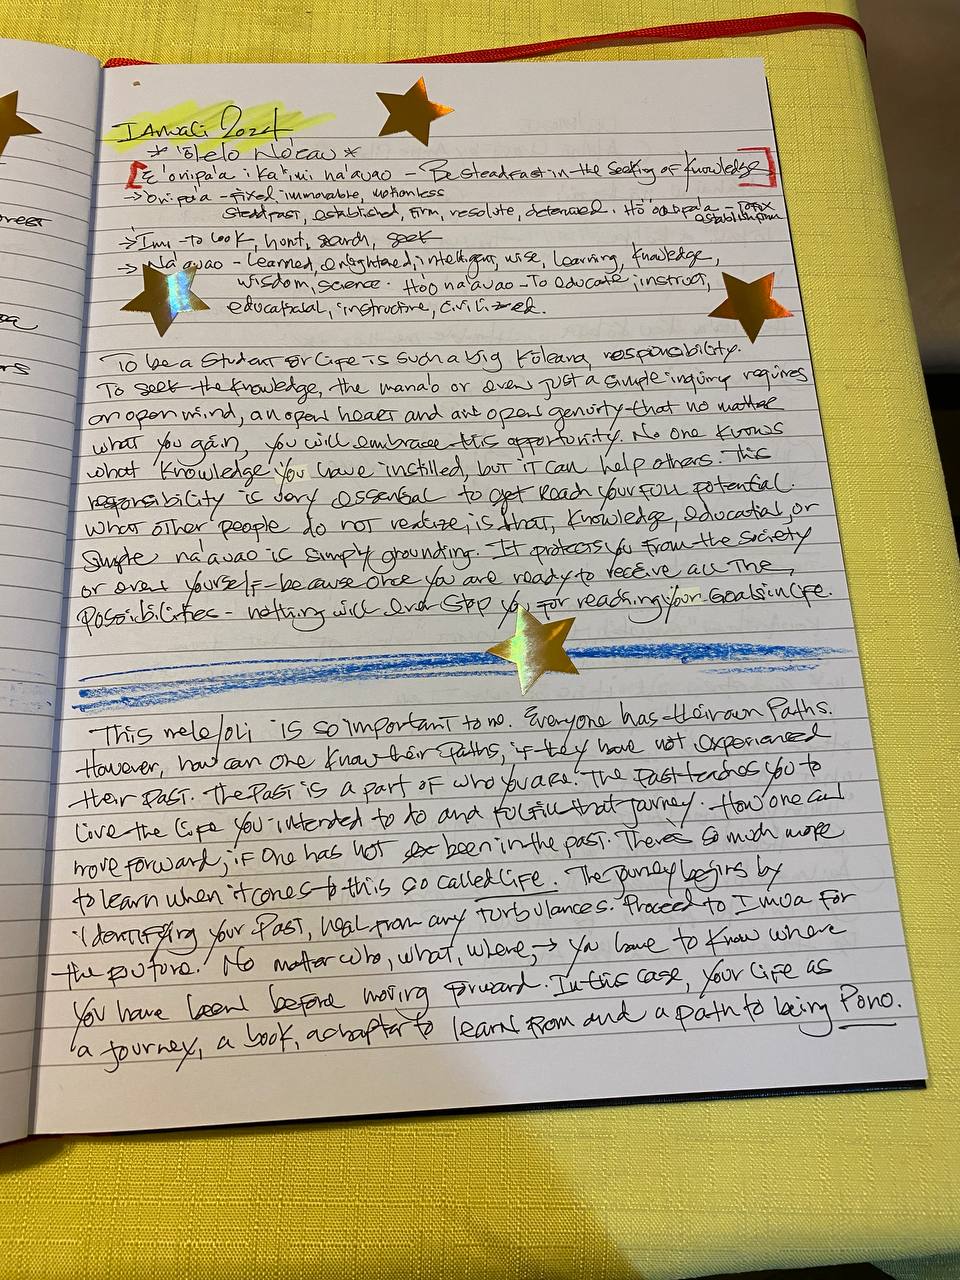 reer
rs
IANUALI 2024
* 'Ōlelo No'eau *
[E 'onipa'a i ka 'imi na'auao - Be steadfast in the seeking of knowledge]
→ 'Onipa'a - Fixed, immovable, motionless
steadfast, established, firm, resolute, determined. Ho'onipa'a - To fix
establish firm
→ 'Imi - To look, hunt, search, seek
→ Na'auao - Learned, enlightened, intelligent, wise, learning, knowledge,
wisdom, science. Ho'o na'auao - To educate, instruct,
educational, instructive, civilized.
To be a student of life is such a big Kūleana, responsibility.
To seek the knowledge, the mana'o or even just a simple inquiry requires
an open mind, an open heart and an open that no matter
what you gain, you will embrace this opportunity. No one knows
what knowledge you have instilled, but it can help others. This
responsibility is very essential to get reach your full potential.
What other people do not realize, is that, knowledge, education, or
simple na'auao is simply grounding. It protects you from the society
or even yourself - because once you are ready to receive all the
possibilities - nothing will ever stop you for reaching your goals in life.
This mele/oli is so important to me. Everyone has their own paths.
However, how can one know their paths, if they have not experienced
their past. The past is a part of who you are. The past teaches you to
live the life you intended to do and fulfill that journey. How one can
move forward, if one has not been in the past. There's so much more
to learn when it comes to this so called life. The journey begins by
identifying your past, heal from any turbulances. Proceed to Imua for
the future. No matter who, what, where, → you have to know where
you have been before moving forward. In this case, your life as
a journey, a book, a chapter to learn from and a path to being Pono.